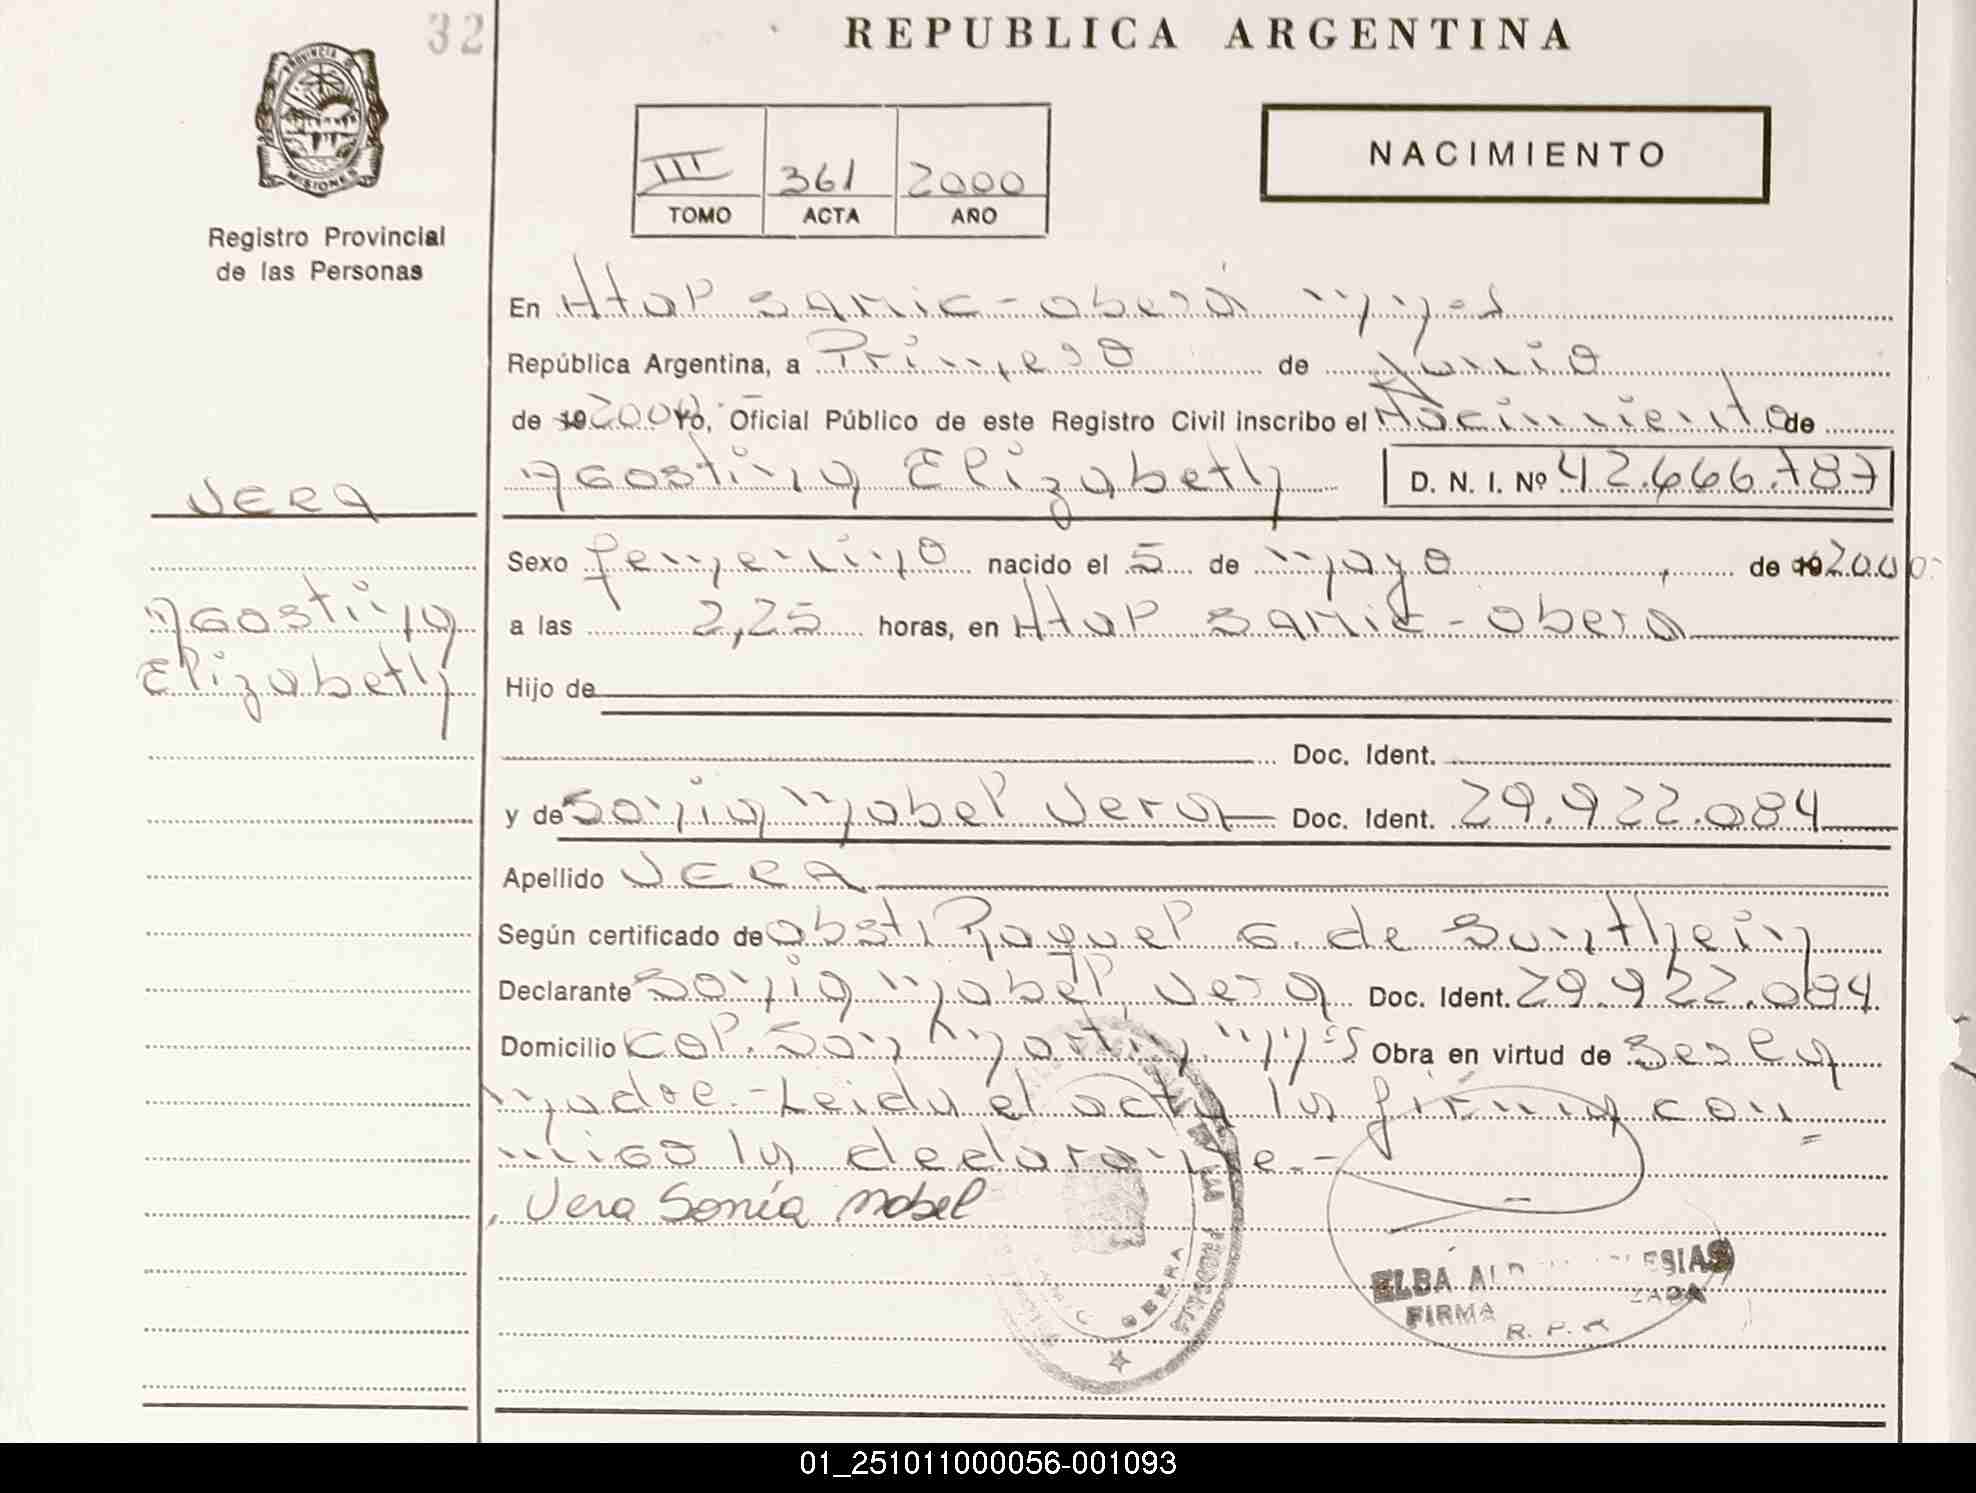 32
REPUBLICA ARGENTINA
PROVINCIA DE
MISIONES
Registro Provincial
de las Personas
III 361 2000
TOMO ACTA AÑO
NACIMIENTO
En Htal SAMIC - Oberá Mnes
República Argentina, a Primero de Junio
de 19 2000 Yo, Oficial Público de este Registro Civil inscribo el Nacimiento de
VERA
Agostina Elizabeth D. N. I. Nº 42.666.787
Sexo femenino nacido el 5 de mayo de 19 2000
Agostina
Elizabeth
a las 2,25 horas, en Htal SAMIC - Oberá
Hijo de
Doc. Ident.
y de Sonia Mabel Vera Doc. Ident. 29.922.084
Apellido VERA
Según certificado de Obst. Raquel G. de
Declarante Sonia Mabel Vera Doc. Ident. 29.922.084
Domicilio Col. San Martín Mnes Obra en virtud de ser la
madre.- Leída el acta la firma con
migo la declarante.-
Vera Sonia mabel
OBERA
ELBA IGLESIAS
FIRMA
R. P.
01_251011000056-001093